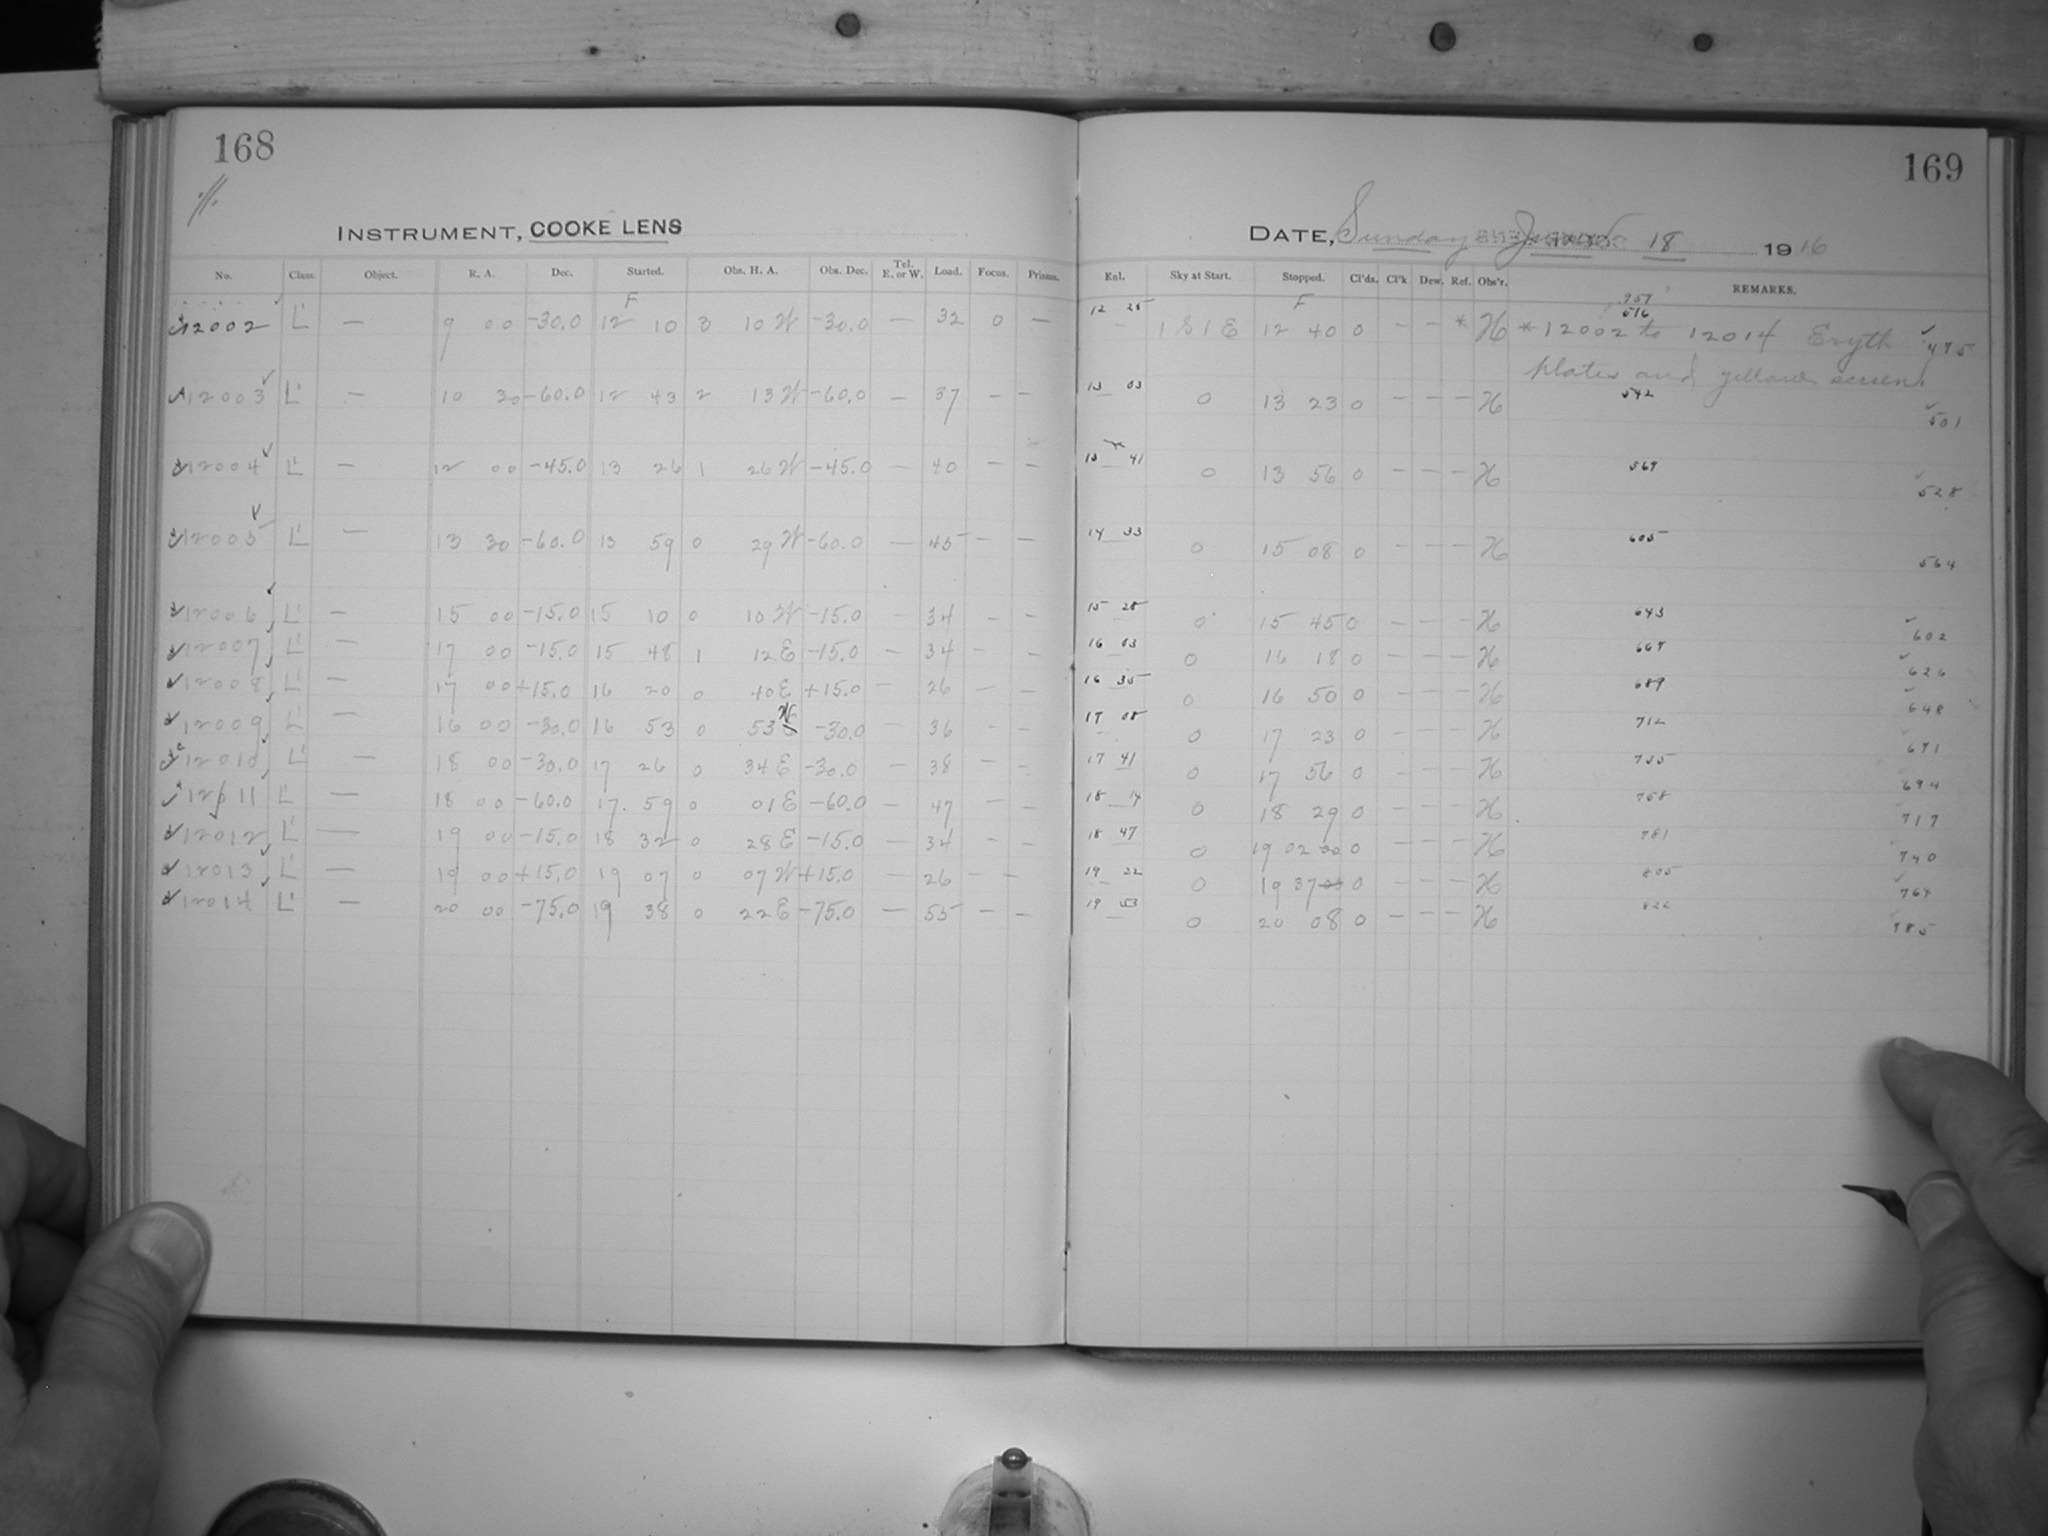 168
INSTRUMENT, COOKE LENS
No. Class. Object. R. A. Dec. Started. Obs. H. A. Obs. Dec. Tel. E. or W. Load. Focus. Prisms.
F
12002 L' — 9 00 -30.0 12 10 3 10 W -30.0 — 32 0 —
12003 L' — 10 30 -60.0 12 43 2 13 W -60.0 — 37 — —
12004 L' — 12 00 -45.0 13 26 1 26 W -45.0 — 40 — —
12005 L' — 13 30 -60.0 13 59 0 29 W -60.0 — 45 — —
12006 L' — 15 00 -15.0 15 10 0 10 W -15.0 — 34 — —
12007 L' — 17 00 -15.0 15 48 1 12 E -15.0 — 34 — —
12008 L' — 17 00 +15.0 16 20 0 40 E +15.0 — 26 — —
12009 L' — 16 00 -30.0 16 53 0 53 W -30.0 — 36 — —
12010 L' — 18 00 -30.0 17 26 0 34 E -30.0 — 38 — —
12011 L' — 18 00 -60.0 17 59 0 01 E -60.0 — 47 — —
12012 L' — 19 00 -15.0 18 32 0 28 E -15.0 — 34 — —
12013 L' — 19 00 +15.0 19 07 0 07 W +15.0 — 26 — —
12014 L' — 20 00 -75.0 19 38 0 22 E -75.0 — 55 — —
169
DATE, Sunday June 18 1916
Enl. Sky at Start. Stopped. Cl'ds. Cl'k Dew. Ref. Obs'r. REMARKS.
F .959
12 25 1 S 1 E 12 40 0 — — * H 516 * 12002 to 12014 Eryth 475
plates and yellow screen
13 03 0 13 23 0 — — — H 542 501
13 41 0 13 56 0 — — — H 569 528
14 33 0 15 08 0 — — — H 605 564
15 28 0 15 45 0 — — — H 643 602
16 03 0 16 18 0 — — — H 667 626
16 35 0 16 50 0 — — — H 689 648
17 08 0 17 23 0 — — — H 712 671
17 41 0 17 56 0 — — — H 735 694
18 14 0 18 29 0 — — — H 758 717
18 47 0 19 02 0 — — — H 781 740
19 22 0 19 37 0 — — — H 805 764
19 53 0 20 08 0 — — — H 826 785